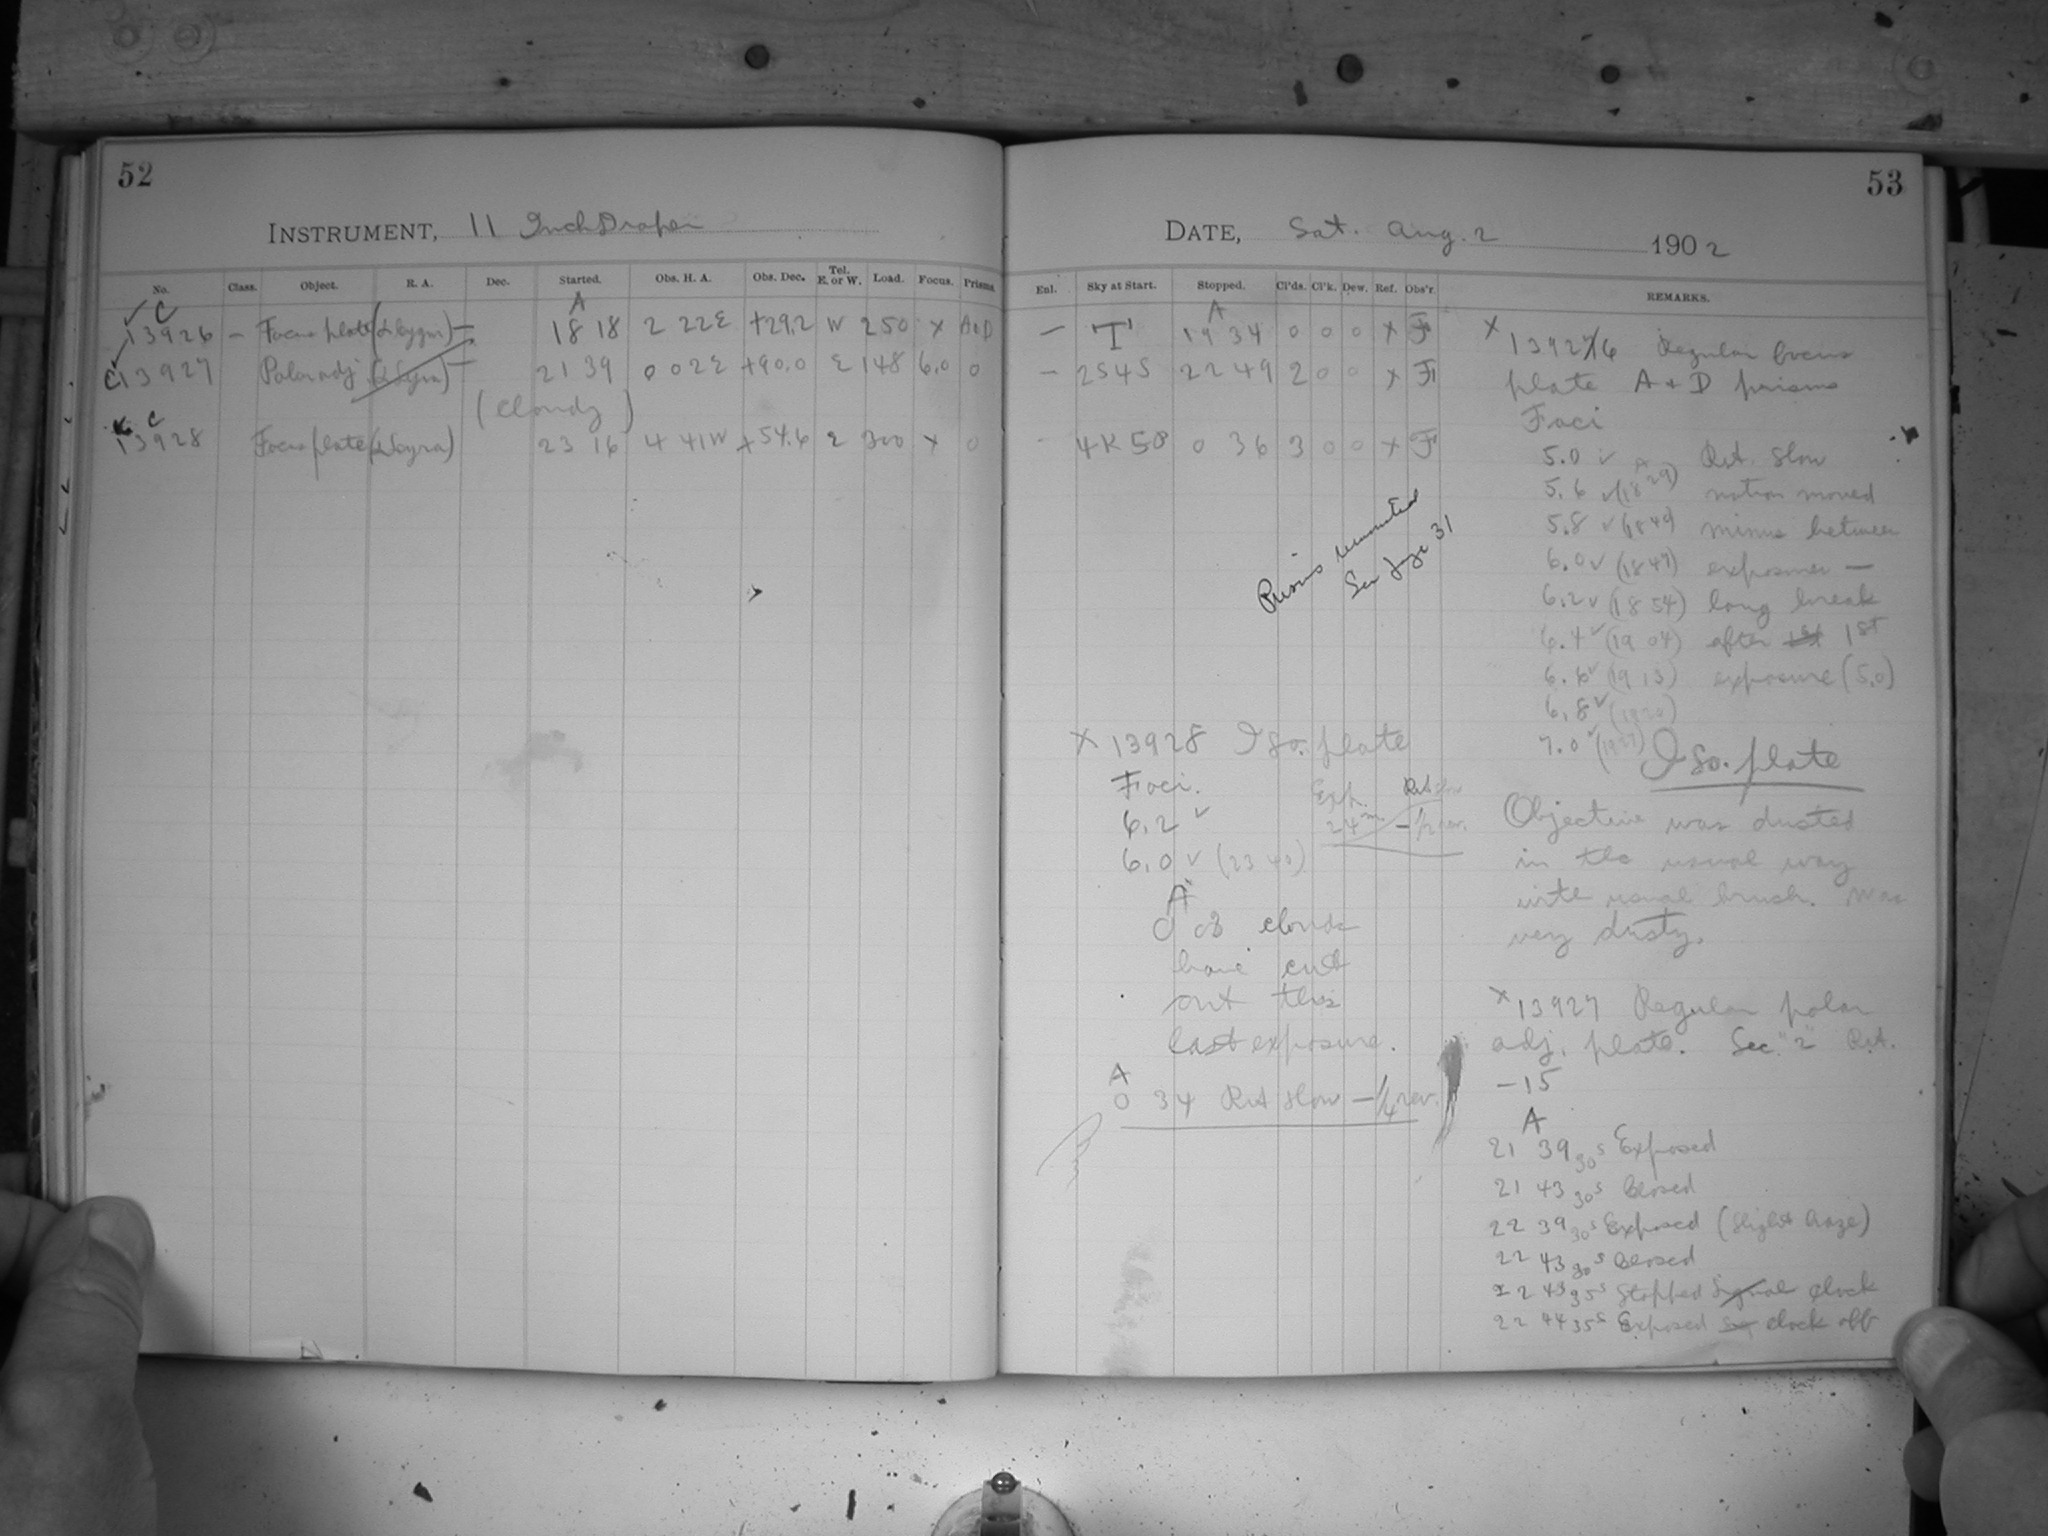 52
INSTRUMENT, 11 Inch Draper
No. Class. Object. R. A. Dec. Started. Obs. H. A. Obs. Dec. Tel. E. or W. Load. Focus. Prisms.
C A
13926 — Focus plate 18 18 2 22 E +29.2 W 250 x A+D
C 13927 Polar adj 21 39 0 02 E +90.0 E 148 6.0 0
(Cloudy)
C
13928 Focus plate 23 16 4 41 W +54.6 E 300 x 0
53
DATE, Sat. Aug. 2 1902
Enl. Sky at Start. Stopped. Cl'ds. Cl'k. Dew. Ref. Obs'r. REMARKS.
A
— T' 19 34 0 0 0 x F
— 2S4S 22 49 2 0 0 x F
- 4K50 0 36 3 0 0 x F
Prisms remounted
See page 31
x 13928 Iso. plate
Foci. Exp. Rit. slow
6.2 ✓ 24m - 1/2 rev.
6.0 ✓ (23 40)
A
0 08 clouds
have cut
out this
last exposure.
A
0 34 Rit slow - 1/4 rev.
x 13927/6 Regular focus
plate A + D prisms
Foci
5.0 ✓ A Rit. slow
5.6 ✓ (18 29) motion moved
5.8 ✓ (1840) minus between
6.0 ✓ (1847) exposures —
6.2 ✓ (18 54) long break
6.4 ✓ (19 04) after 1st 1st
6.6 ✓ (19 13) exposure (5.0)
6.8 ✓ (1920)
7.0 ✓ (1927) Iso. plate
Objective was dusted
in the usual way
with usual brush. Was
very dusty.
x 13927 Regular polar
adj. plate. Sec. "2" Rit.
- 15
A
21 39 30s Exposed
21 43 30s Closed
22 39 30s Exposed (slight haze)
22 43 30s Closed
22 43 35s Stopped Signal clock
22 44 35s Exposed clock off